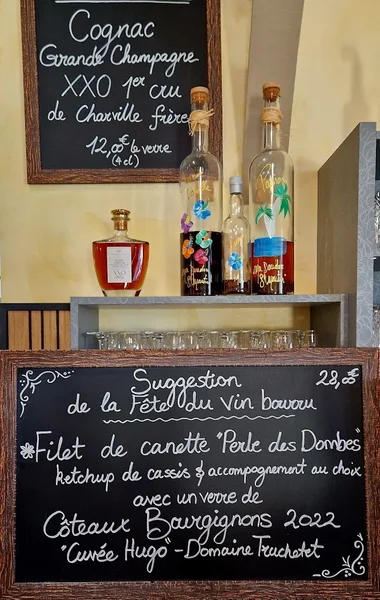 Cognac
Grande Champagne
XXO 1er cru
de Charville frère
12,00€ le verre
(4cl)
XXO
Suggestion 28,00€
de la Fête du vin bourru
Filet de canette "Perle des Dombes"
ketchup de cassis & accompagnement au choix
avec un verre de
Côteaux Bourgignons 2022
"Cuvée Hugo" - Domaine Truchetet